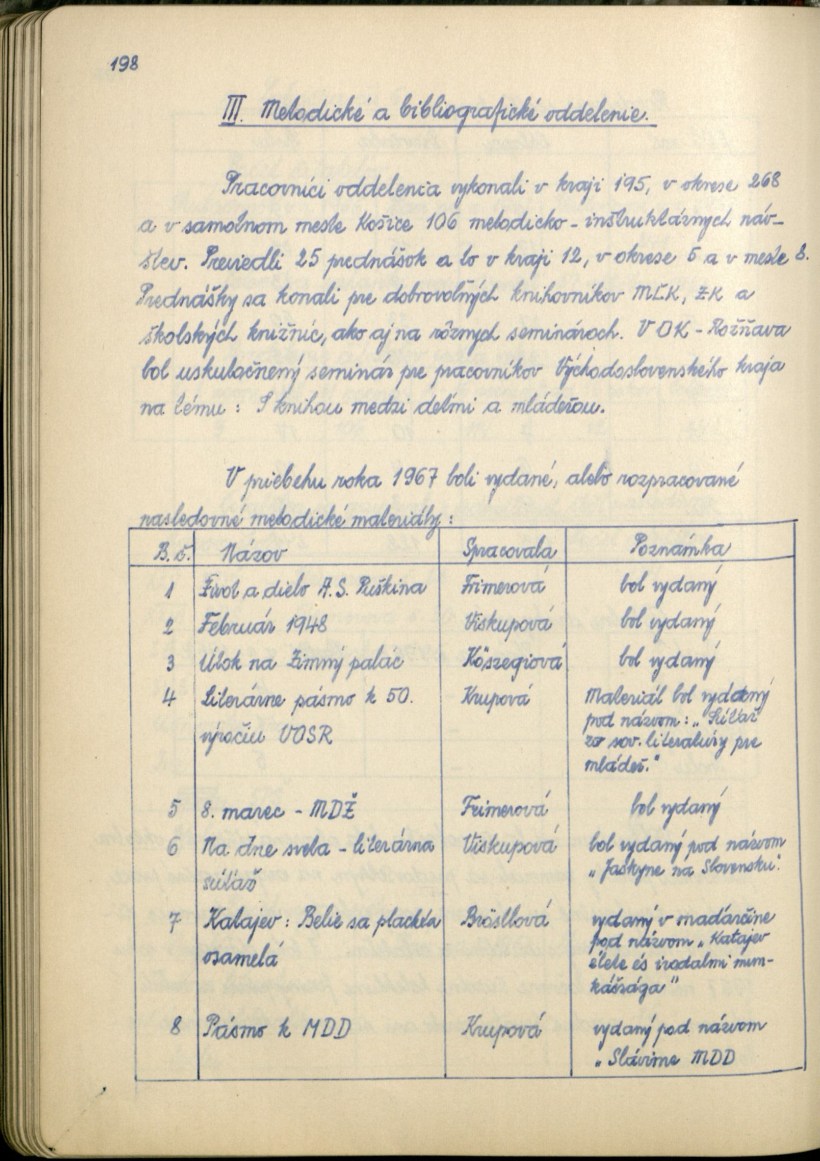 198
III. Metodické a bibliografické oddelenie.
Pracovníci oddelenia vykonali v kraji 195, v okrese 268
a v samotnom meste Košice 106 metodicko-inštruktárnych náv-
štev. Previedli 25 prednášok a to v kraji 12, v okrese 5 a v meste 8.
Prednášky sa konali pre dobrovoľných knihovníkov MĽK, ZK a
školských knižníc, ako aj na rôznych seminároch. V OK - Rožňava
bol uskutočnený seminár pre pracovníkov Východoslovenského kraja
na tému: S knihou medzi deťmi a mládežou.
V priebehu roka 1967 boli vydané, alebo rozpracované
nasledovné metodické materiály:
B.č. Názov Spracovala Poznámka
1 Život a dielo A.S. Puškina Frimerová bol vydaný
2 Február 1948 Viskupová bol vydaný
3 Útok na Zimný palác Kőszegiová bol vydaný
4 Literárne pásmo k 50. Krupová Materiál bol vydaný
výročiu VOSR pod názvom: „Súťaž
zo sov. literatúry pre
mládež."
5 8. marec - MDŽ Frimerová bol vydaný
6 Na dne sveta - literárna Viskupová bol vydaný pod názvom
súťaž „Jaskyne na Slovensku".
7 Katajev: Belie sa plachta Bröstlová vydaný v maďarčine
osamelá pod názvom „Katajev
élete és irodalmi mun-
kássága"
8 Pásmo k MDD Krupová vydaný pod názvom
„Slávime MDD